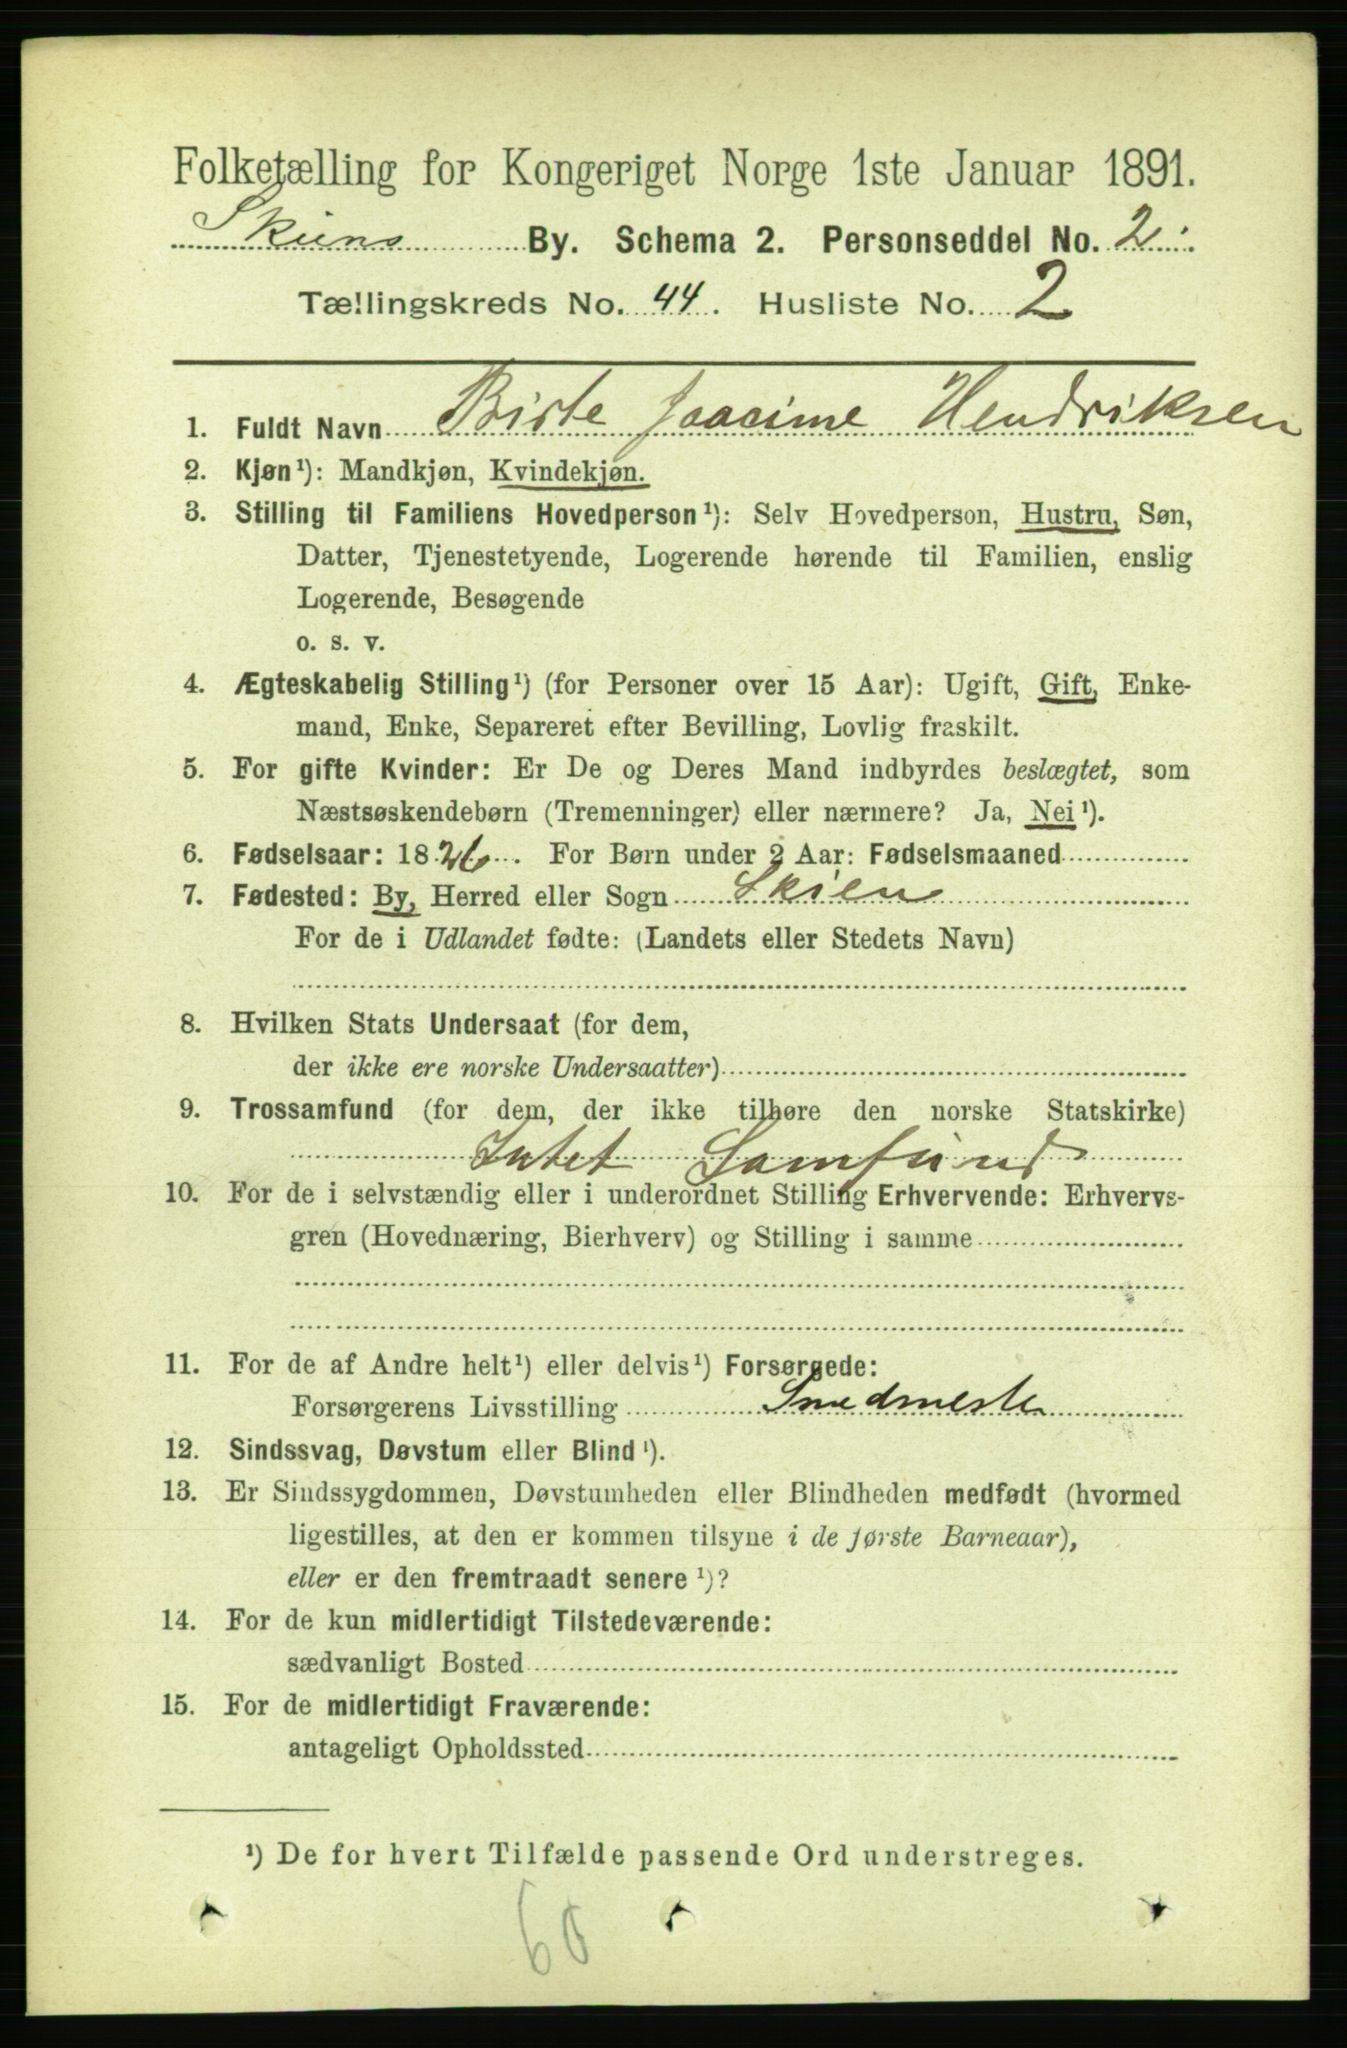 Folketælling for Kongeriget Norge 1ste Januar 1891.
Skiens By. Schema 2. Personseddel No. 2.
Tællingskreds No. 44. Husliste No. 2
1. Fuldt Navn Birte Joacime Hendriksen
2. Kjøn¹): Mandkjøn, Kvindekjøn.
3. Stilling til Familiens Hovedperson¹): Selv Hovedperson, Hustru, Søn,
Datter, Tjenestetyende, Logerende hørende til Familien, enslig
Logerende, Besøgende
o. s. v.
4. Ægteskabelig Stilling¹) (for Personer over 15 Aar): Ugift, Gift, Enke-
mand, Enke, Separeret efter Bevilling, Lovlig fraskilt.
5. For gifte Kvinder: Er De og Deres Mand indbyrdes beslægtet, som
Næstsøskendebørn (Tremenninger) eller nærmere? Ja, Nei¹).
6. Fødselsaar: 1826. For Børn under 2 Aar: Fødselsmaaned
7. Fødested: By, Herred eller Sogn Skien
For de i Udlandet fødte: (Landets eller Stedets Navn)
8. Hvilken Stats Undersaat (for dem,
der ikke ere norske Undersaatter)
9. Trossamfund (for dem, der ikke tilhøre den norske Statskirke)
Intet Samfund
10. For de i selvstændig eller i underordnet Stilling Erhvervende: Erhvervs-
gren (Hovednæring, Bierhverv) og Stilling i samme
11. For de af Andre helt¹) eller delvis¹) Forsørgede:
Forsørgerens Livsstilling Smedmester
12. Sindssvag, Døvstum eller Blind¹).
13. Er Sindssygdommen, Døvstumheden eller Blindheden medfødt (hvormed
ligestilles, at den er kommen tilsyne i de første Barneaar),
eller er den fremtraadt senere¹)?
14. For de kun midlertidigt Tilstedeværende:
sædvanligt Bosted
15. For de midlertidigt Fraværende:
antageligt Opholdssted
¹) De for hvert Tilfælde passende Ord understreges.
60